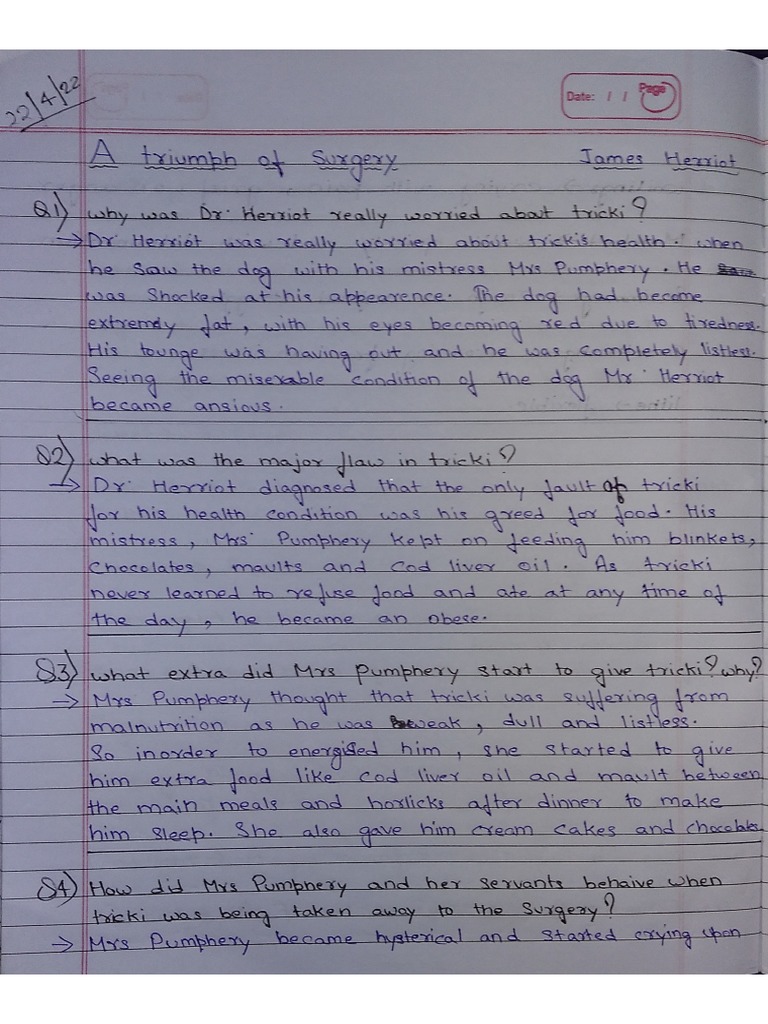 22/4/22
Date: / / Page
A triumph of Surgery James Herriot
Q1) why was Dr. Herriot really worried about tricki?
→ Dr Herriot was really worried about trickis health. when
he saw the dog with his mistress Mrs Pumphery. He
was Shocked at his appearence. The dog had become
extremely fat, with his eyes becoming red due to tiredness.
His tounge was having out and he was completely listless.
Seeing the miserable condition of the dog Mr. Herriot
became ansious.
Q2) what was the major flaw in tricki?
→ Dr. Herriot diagnosed that the only fault of tricki
for his health condition was his greed for food. His
mistress, Mrs Pumphery kept on feeding him blinkets,
Chocolates, maults and cod liver oil. As tricki
never learned to refuse food and ate at any time of
the day, he became an obese.
Q3) what extra did Mrs Pumphery start to give tricki? why?
→ Mrs Pumphery thought that tricki was suffering from
malnutrition as he was weak, dull and listless.
So inorder to energised him, she started to give
him extra food like cod liver oil and mault between
the main meals and horlicks after dinner to make
him sleep. She also gave him cream cakes and
Q4) How did Mrs Pumphery and her servants behaive when
tricki was being taken away to the surgery?
→ Mrs Pumphery became hysterical and started crying upon